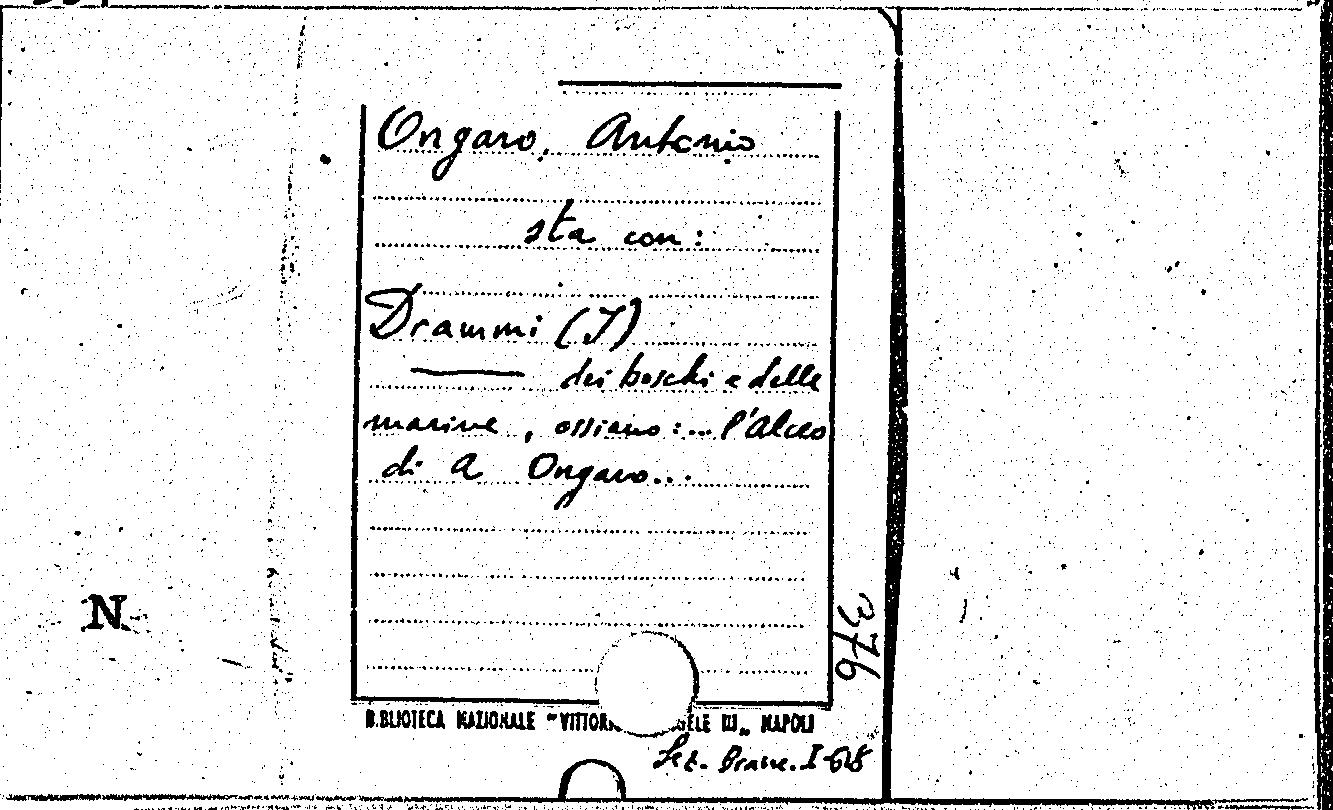 Ongaro, Antonio
sta con:
Drammi (I)
dei boschi e delle
marine, ossiano:... l'Alceo
di A Ongaro...
376
N
BIBLIOTECA NAZIONALE "VITTORI ELE III„ NAPOLI
Sez. I